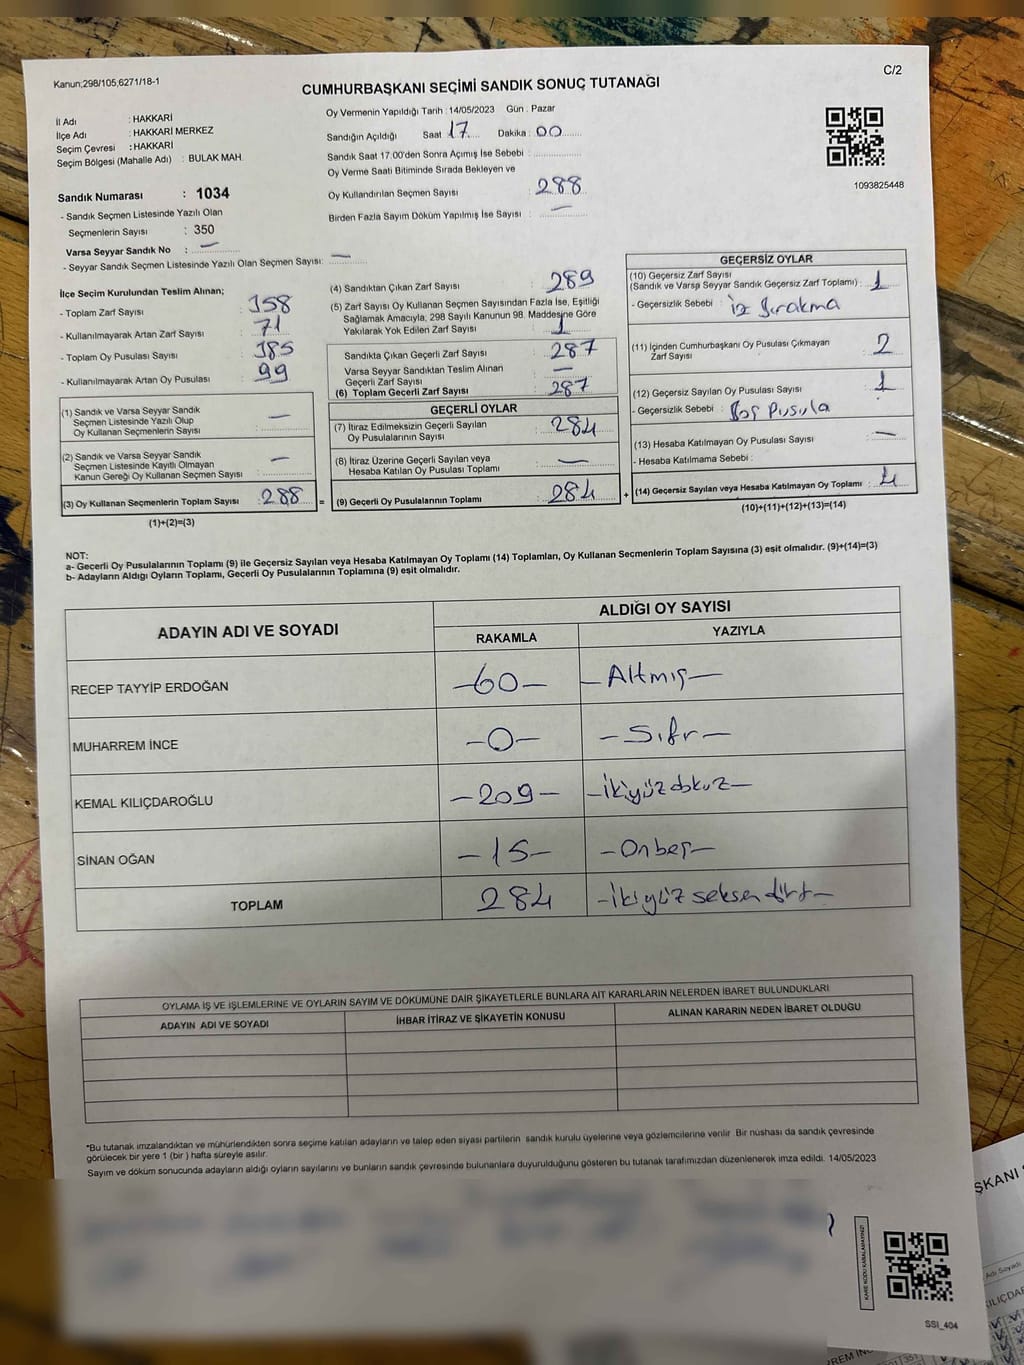 Kanun;298/105,6271/18-1
C/2
CUMHURBAŞKANI SEÇİMİ SANDIK SONUÇ TUTANAĞI
İl Adı : HAKKARİ
İlçe Adı : HAKKARİ MERKEZ
Seçim Çevresi : HAKKARİ
Seçim Bölgesi (Mahalle Adı) : BULAK MAH.
Sandık Numarası : 1034
- Sandık Seçmen Listesinde Yazılı Olan
Seçmenlerin Sayısı : 350
Varsa Seyyar Sandık No : —
- Seyyar Sandık Seçmen Listesinde Yazılı Olan Seçmen Sayısı: —
Oy Vermenin Yapıldığı Tarih : 14/05/2023 Gün : Pazar
Sandığın Açıldığı Saat 17 Dakika : 00
Sandık Saat 17.00'den Sonra Açımış İse Sebebi :
Oy Verme Saati Bitiminde Sırada Bekleyen ve
Oy Kullandırılan Seçmen Sayısı : 288
Birden Fazla Sayım Döküm Yapılmış İse Sayısı : —
1093825448
İlçe Seçim Kurulundan Teslim Alınan;
- Toplam Zarf Sayısı : 358
- Kullanılmayarak Artan Zarf Sayısı : 71
- Toplam Oy Pusulası Sayısı : 385
- Kullanılmayarak Artan Oy Pusulası : 99
(1) Sandık ve Varsa Seyyar Sandık
Seçmen Listesinde Yazılı Olup
Oy Kullanan Seçmenlerin Sayısı : —
(2) Sandık ve Varsa Seyyar Sandık
Seçmen Listesinde Kayıtlı Olmayan
Kanun Gereği Oy Kullanan Seçmen Sayısı : —
(3) Oy Kullanan Seçmenlerin Toplam Sayısı : 288 =
(1)+(2)=(3)
(4) Sandıktan Çıkan Zarf Sayısı : 289
(5) Zarf Sayısı Oy Kullanan Seçmen Sayısından Fazla İse, Eşitliği
Sağlamak Amacıyla, 298 Sayılı Kanunun 98. Maddesine Göre
Yakılarak Yok Edilen Zarf Sayısı : 1
Sandıkta Çıkan Geçerli Zarf Sayısı : 287
Varsa Seyyar Sandıktan Teslim Alınan
Geçerli Zarf Sayısı : —
(6) Toplam Gecerli Zarf Sayısı : 287
GEÇERLİ OYLAR
(7) İtiraz Edilmeksizin Geçerli Sayılan
Oy Pusulalarının Sayısı : 284
(8) İtiraz Üzerine Geçerli Sayılan veya
Hesaba Katılan Oy Pusulası Toplamı : —
(9) Geçerli Oy Pusulalarının Toplamı : 284 +
GEÇERSİZ OYLAR
(10) Geçersiz Zarf Sayısı
(Sandık ve Varsa Seyyar Sandık Geçersiz Zarf Toplamı) : 1
- Geçersizlik Sebebi : iz bırakma
(11) İçinden Cumhurbaşkanı Oy Pusulası Çıkmayan
Zarf Sayısı : 2
(12) Geçersiz Sayılan Oy Pusulası Sayısı : 1
- Geçersizlik Sebebi : Boş Pusula
(13) Hesaba Katılmayan Oy Pusulası Sayısı : —
- Hesaba Katılmama Sebebi :
(14) Geçersiz Sayılan veya Hesaba Katılmayan Oy Toplamı : 4
(10)+(11)+(12)+(13)=(14)
NOT:
a- Gecerli Oy Pusulalarının Toplamı (9) ile Geçersiz Sayılan veya Hesaba Katılmayan Oy Toplamı (14) Toplamları, Oy Kullanan Seçmenlerin Toplam Sayısına (3) eşit olmalıdır. (9)+(14)=(3)
b- Adayların Aldığı Oyların Toplamı, Geçerli Oy Pusulalarının Toplamına (9) eşit olmalıdır.
ADAYIN ADI VE SOYADI
ALDIĞI OY SAYISI
RAKAMLA YAZIYLA
RECEP TAYYİP ERDOĞAN —60— —Altmış—
MUHARREM İNCE —0— —Sıfır—
KEMAL KILIÇDAROĞLU —209— —İkiyüzdokuz—
SİNAN OĞAN —15— —Onbeş—
TOPLAM 284 —İkiyüz seksen dört—
OYLAMA İŞ VE İŞLEMLERİNE VE OYLARIN SAYIM VE DÖKÜMÜNE DAİR ŞİKAYETLERLE BUNLARA AİT KARARLARIN NELERDEN İBARET BULUNDUKLARI
ADAYIN ADI VE SOYADI İHBAR İTİRAZ VE ŞİKAYETİN KONUSU ALINAN KARARIN NEDEN İBARET OLDUĞU
*Bu tutanak imzalandıktan ve mühürlendikten sonra seçime katılan adayların ve talep eden siyasi partilerin sandık kurulu üyelerine veya gözlemcilerine verilir Bir nüshası da sandık çevresinde
görülecek bir yere 1 (bir) hafta süreyle asılır.
Sayım ve döküm sonucunda adayların aldığı oyların sayılarını ve bunların sandık çevresinde bulunanlara duyurulduğunu gösteren bu tutanak tarafımızdan düzenlenerek imza edildi. 14/05/2023
KARE KODU KARALAMAYINIZ!
SSI_404
ŞKANI
Adı Soyadı
KILIÇDA
REM İNC